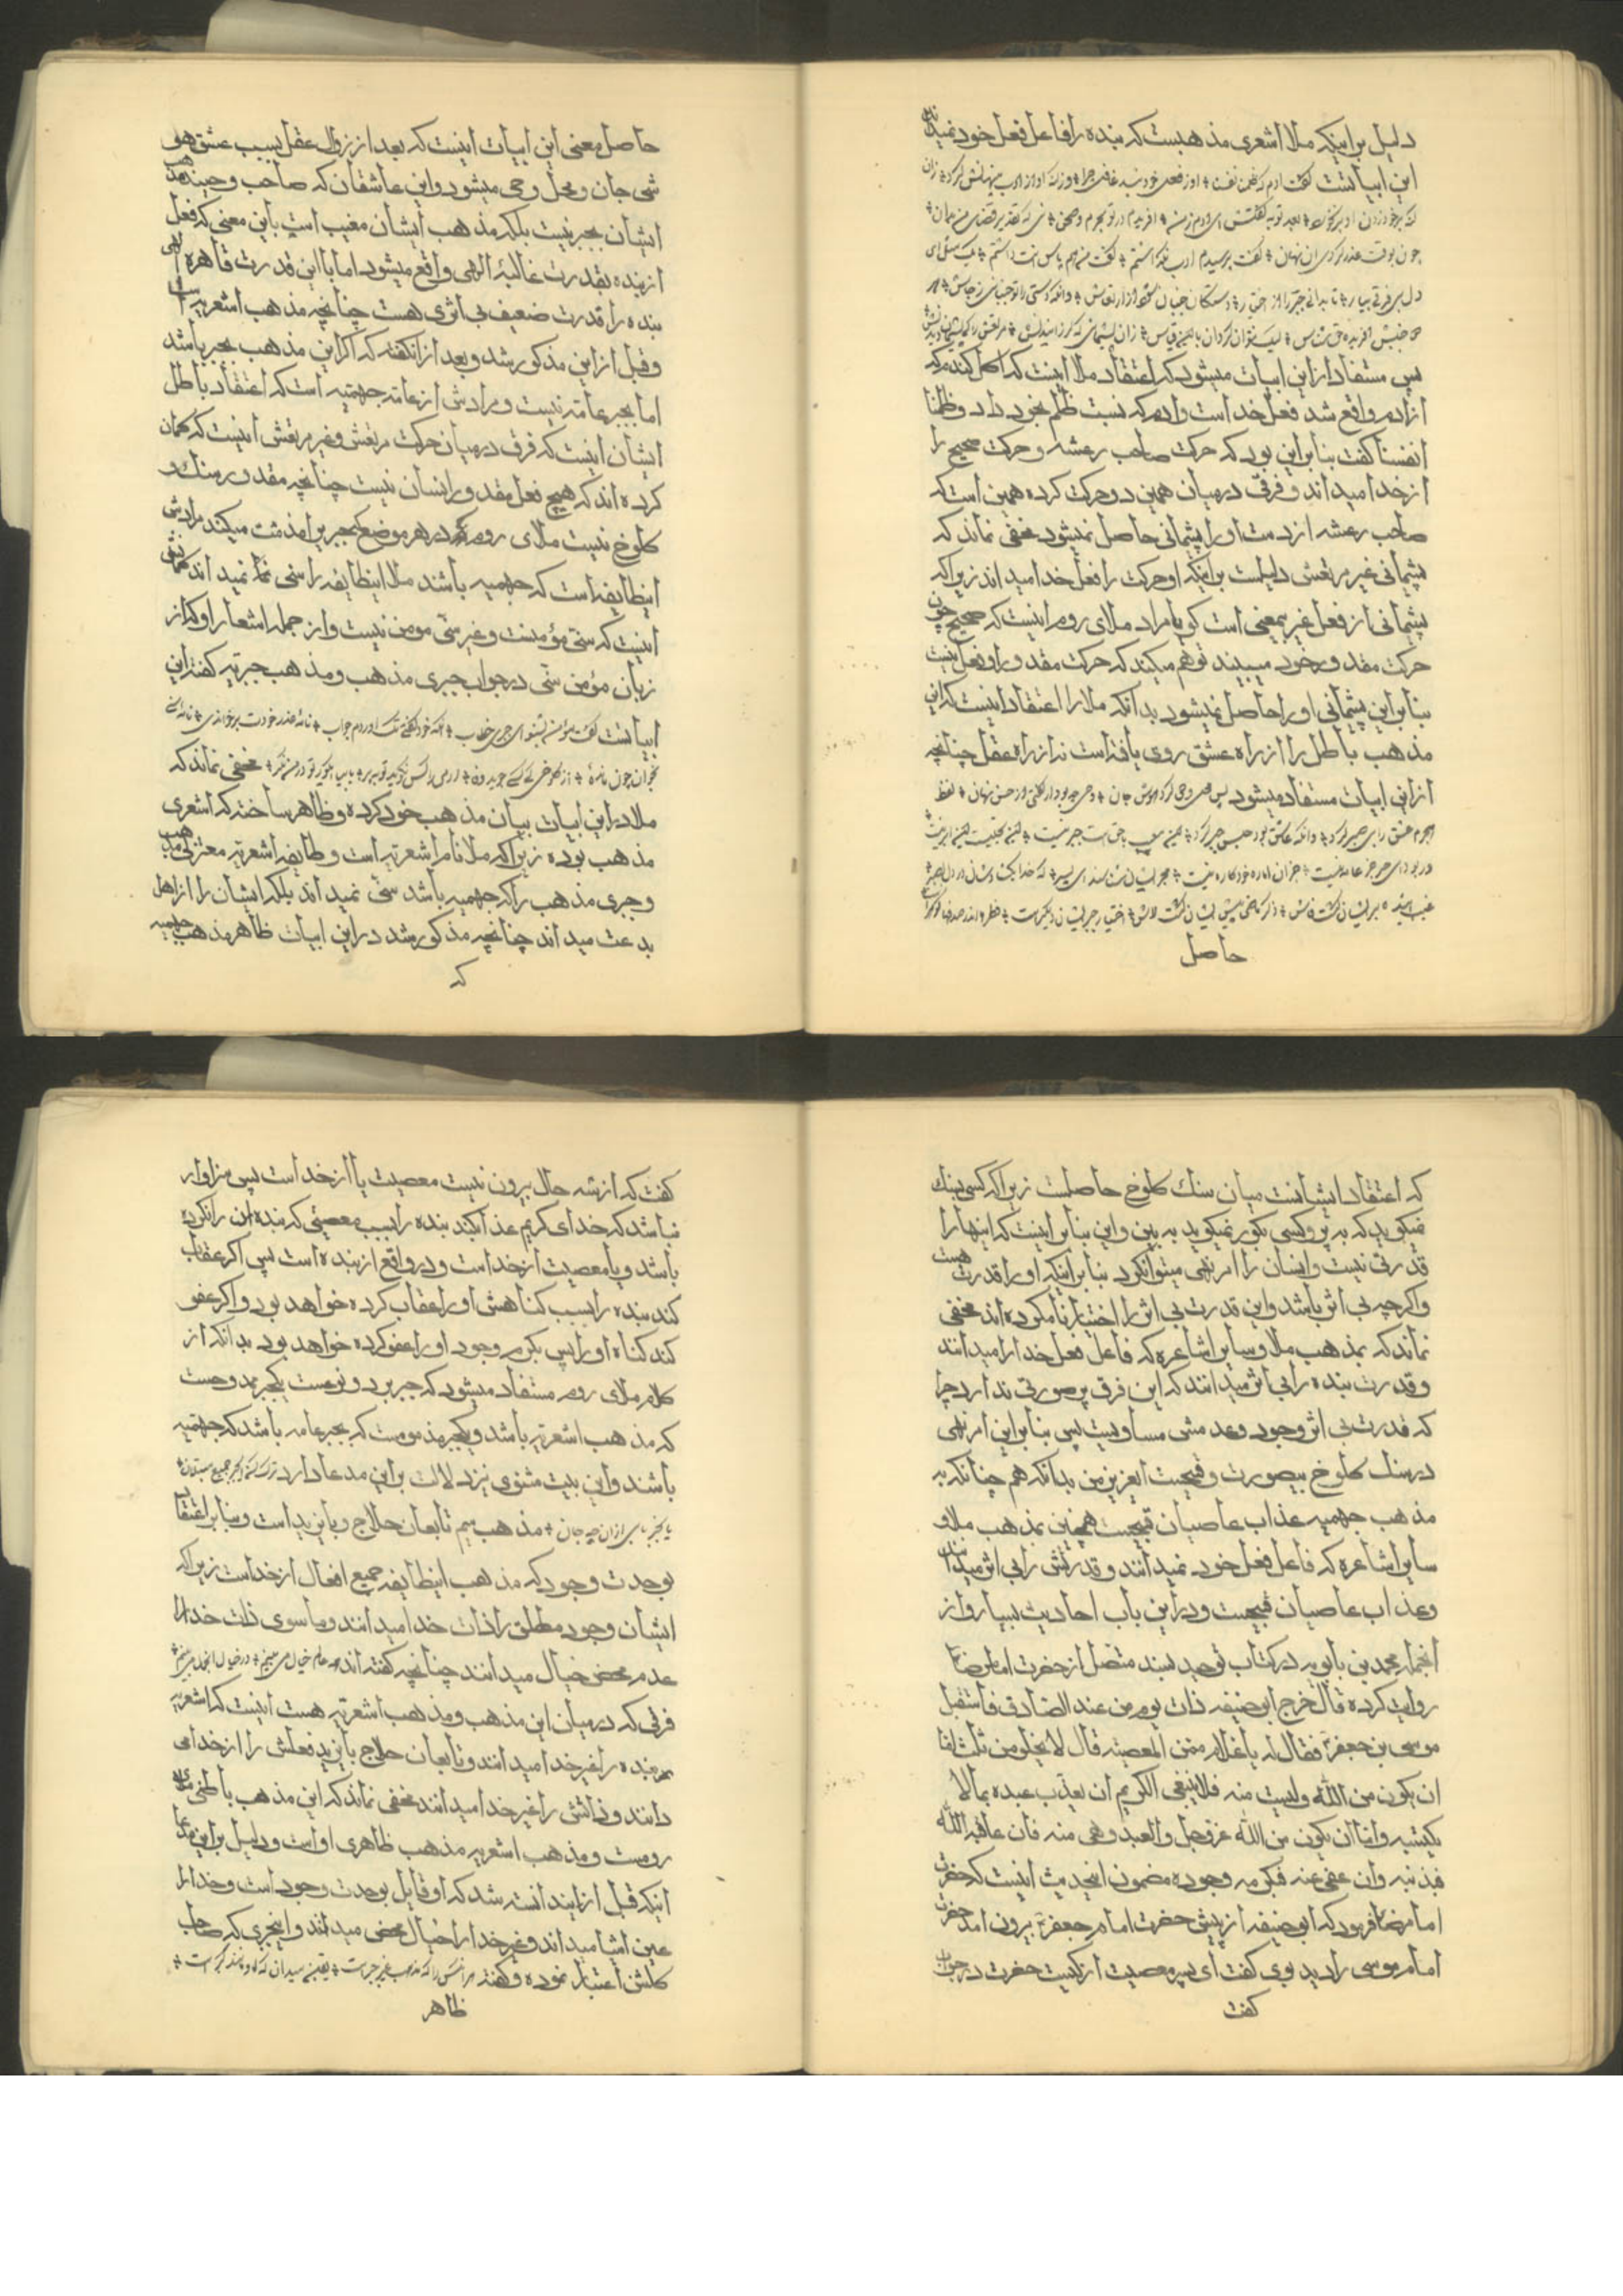 دلیل بر اینکه ملا اشعری مذهبست که بنده را فاعل فعل خود نمیداند
این ابیاتست گفت آدم که ظلمنا نفسنا او ز فعل حق نبد غافل چو ما در گنه او از ادب پنهانش کرد زان
گنه بر خود زدن او بر بخورد بعد توبه گفتش ای آدم نه من آفریدم در تو آن جرم و محن نی که تقدیر و قضای من بد آن
چون بوقت عذر کردی آن نهان گفت ترسیدم ادب نگذاشتم گفت من هم پاس آنت داشتم یک مثال ای
دل پی فرقی بیار تا بدانی جبر را از اختیار دست کان لرزان بود از ارتعاش وانکه دستی را تو لرزانی ز جاش هر
دو جنبش آفریده حق شناس لیک نتوان کرد این با آن قیاس زان پشیمانی که لرزانیدیش مرتعش را کی پشیمان دیدیش
پس مستفاد ازین ابیات میشود که اعتقاد ملا اینست که اکل گندم که
از آدم واقع شد فعل خداست و آدم که نسبت ظلم بخود داد و ظلمنا
انفسنا گفت بنابراین بود که حرکت صاحب رعشه و حرکت صحیح را
از خدا میداند و فرقی درمیان همین دو حرکت کرده همین است که
صاحب رعشه از دست او را پشیمانی حاصل نمیشود مخفی نماند که
پشیمانی غیر مرتعش دلیلست بر اینکه او حرکت را فعل خدا میداند زیرا که
پشیمانی از فعل غیر بیمعنی است کویا مراد ملای روم اینست که صحیح چون
حرکت مقدور خود میبیند توهم میکند که حرکت مقدور او فعل اینست
بنابراین پشیمانی او را حاصل نمیشود بدانکه ملا را اعتقاد اینست که این
مذهب باطل را از راه عشق روی یافته است نه از راه عقل چنانچه
ازین ابیات مستفاد میشود پس محل وحی گردد گوش جان وحی چه بود گفتنی از حس نهان لفظ
جبرم عشق را بی صبر کرد وانکه عاشق نبود حبس جبر کرد این معیت با حق است و جبر نیست این تجلی مه است این ابر نیست
ور بود این جبر جبر عامه نیست جبر آن اماره خودکامه نیست جبر را ایشان شناسند ای پسر که خدا بگشادشان در دل بصر
غیب آینده بر ایشان گشت فاش ذکر ماضی پیش ایشان گشت لاش اختیار و جبر ایشان دیگرست قطره ها اندر صدفها گوهرست
حاصل
حاصل معنی این ابیات اینست که بعد از زوال عقل بسبب عشق هر
شی جان و محل وحی میشود و این عاشقان که صاحب وحیند مذهب
ایشان بجبر نیست بلکه مذهب ایشان معیت است باین معنی که فعل
از بنده بقدرت غالبهٔ الهی واقع میشود اما با این قدرت قاهره الهی
بنده را قدرت ضعیف بی اثری هست چنانچه مذهب اشعریه است
و قبل ازین مذکور شد و بعد از آن گفته که اگر این مذهب جبر باشد
اما بجبر عامه نیست و مرادش از عامه جهمیه است که اعتقاد باطل
ایشان اینست که فرق درمیان حرکت مرتعش و غیر مرتعش اینست که گمان
کرده اند که هیچ فعل مقدور انسان نیست چنانچه مقدور سنک و
کلوخ نیست ملای روم که در هر موضع که جبریرا مذمت میکند مرادش
اینطایفه است که جهمیه باشند ملا اینطایفه را سنی نمیداند کمانش
اینست که سنی مؤمنست و غیر سنی مومن نیست و از جمله اشعار او که از
زبان مؤمن سنی در جواب جبری مذهب و مذهب جبریه گفته این
ابیاتست گفت مؤمن بشنو ای جبری خطاب آن خود گفتی نک آوردم جواب نامه عذر خودت برخواندی نامه سنی
بخوان چون ماندهٔ از کلوخی کس کجا جوید وفا آدمی را کس نگوید هین بپر یا بیا ای کور تو در من نگر مخفی نماند که
ملا در این ابیات بیان مذهب خود کرده و ظاهر ساخته که اشعری
مذهب بوده زیرا که ملا نام اشعریه است و طایفه اشعریه معتزلی مذهب
و جبری مذهب را که جهمیه باشد سنی نمیداند بلکه ایشان را از اهل
بدعت میداند چنانچه مذکور شد در این ابیات ظاهر مذهب جهمیه
که
که اعتقاد ایشانست میان سنک کلوخ حاصلست زیرا که کسی بسنک
نمیکوید که بپر و کسی بکور نمیکوید به بین و این بنابر اینست که اینها را
قدرتی نیست و انسان را امر و نهی میتوان کرد بنابر اینکه او را قدرت هست
و اگر چه بی اثر باشد و این قدرت بی اثر را اختیار نام کرده اند مخفی
نماند که بمذهب ملا و سایر اشاعره که فاعل فعل خدا را میدانند
و قدرت بنده را بی اثر میدانند که این فرق پر صورتی ندارد چرا
که قدرت بی اثر وجود و عدمش مساویست پس بنابراین امر و نهی
در سنک کلوخ بیصورت و قبیحست ای عزیز من بدانکه هم چنانکه به
مذهب جهمیه عذاب عاصیان قبیحست همچنین بمذهب ملا و
سایر اشاعره که فاعل فعل خود نمیدانند و قدرتش را بی اثر میدانند
و عذاب عاصیان قبیحست و دراین باب احادیث بسیار و از
آنجمله محمد بن بابویه در کتاب توحید بسند متصل از حضرت امام رضا
روایت کرده قال خرج ابی حنیفه ذات یوم من عند الصادق فاستقبل
موسی بن جعفر فقال له یا غلام ممّن المعصیة قال لا یخلو من ثلث اما
ان یکون من الله و لیست منه فلا ینبغی الکریم ان یعذب عبده بما لا
یکتسبه و اما ان یکون من الله عز و جل و العبد و هی منه فان عاقبه الله
فبذنبه و ان عفی عنه فبکرمه وجوده مضمون اینحدیث اینست که حضرت
امام رضا فرمود که ابو حنیفه از پیش حضرت امام جعفر بیرون امد حضرت
امام موسی را دید بوی گفت ای پسر معصیت از کیست حضرت در جواب
گفت
گفت که از سه حال بیرون نیست معصیت یا از خداست پس سزاوار
نباشد که خدای کریم عذاب کند بنده را بسبب معصیتی که بنده آن را نکرده
باشد و یا معصیت از خداست و در واقع از بنده است پس اگر عقاب
کند بنده را بسبب کناهش او را عقاب کرده خواهد بود و اگر عفو
کند کناه او را پس بکرم وجود او را عفو کرده خواهد بود بدانکه از
کلام ملای روم مستفاد میشود که جبر بر دو نوعست یکجبر ممدوحست
که مذهب اشعریه باشد و یکجبر مذمومست که جبر عامه باشد که جهمیه
باشند و این بیت مثنوی نیز دلالت براین مدعا دارد ترک کن این جبر جمع منبلان
تا خبر یابی از آن جبر چو جان مذهب سیم تابعان حلاج و بایزید است و بنابر اعتقاد
بوحدت وجود که مذهب اینطایفه جمیع افعال از خداست زیرا که
ایشان وجود مطلق را ذات خدا میدانند و ما سوی ذات خدا را
عدم محض خیال میدانند چنانچه گفته اند
فرقی که درمیان این مذهب و مذهب اشعریه هست اینست که اشعریه
بنده را غیر خدا میدانند و تابعان حلاج بایزید فعلش را از خدا می
دانند و ذاتش را غیر خدا میدانند مخفی نماند که این مذهب باطنی ملای
رومست و مذهب اشعریه مذهب ظاهری اوست و دلیل براین مدعا
اینکه قبل از این دانسته شد که او قایل بوحدت وجود است و خدا را
عین اشیا میداند و غیر خدا را خیال محض میداند و اینجبری که صاحب
کلشن اعتبار نموده و گفته هر آنکس را که مذهب غیر جبرست یقین میدان که او مانند گبرست
ظاهر